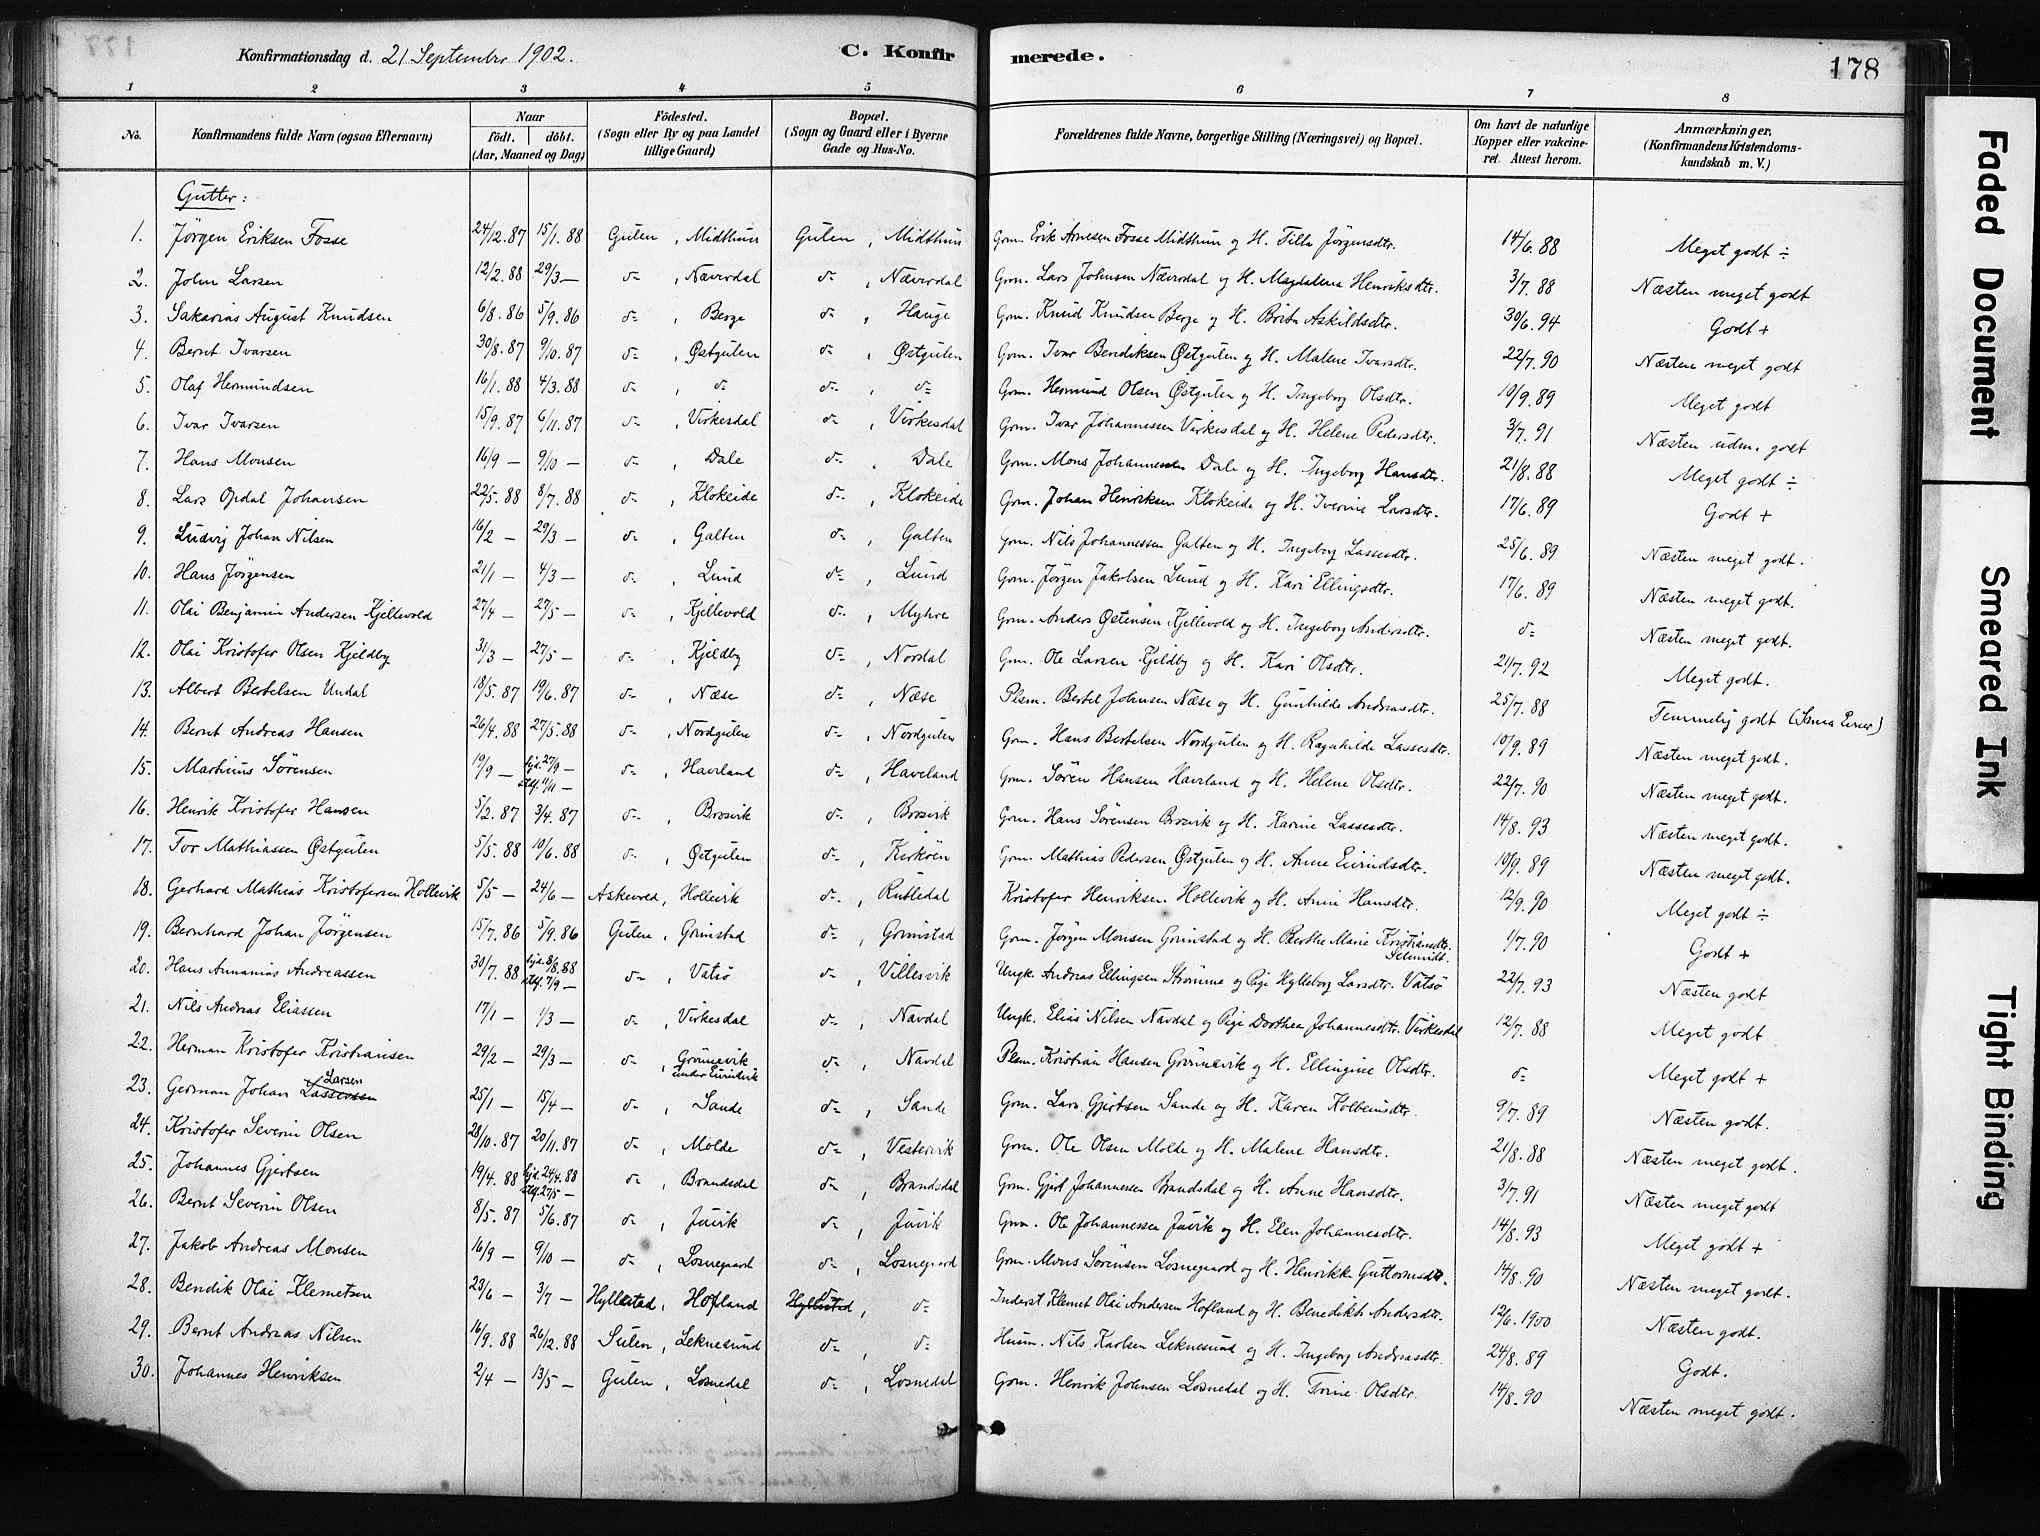 Konfirmationsdag d. 21 September 1902. C. Konfirmerede. 178
1 2 3 4 5 6 7 8
No. Konfirmandens fulde Navn (ogsaa Efternavn) Naar födt. döbt. (Aar, Maaned og Dag) Födested. (Sogn eller By og paa Landet tillige Gaard) Bopæl. (Sogn og Gaard eller i Byerne Gade og Hus-No. Forældrenes fulde Navne, borgerlige Stilling (Næringsvei) og Bopæl. Om havt de naturlige Kopper eller vakcineret. Attest herom. Anmærkninger. (Konfirmandens Kristendomskundskab m. V.)
Gutter:
1. Jörgen Eriksen Fosse 24/12.87 15/1.88 Gulen, Midthun Gulen, Midthun Grm. Erik Arnesen Fosse Midthun og H. Tilla Jörgensdtr. 14/6.88 Meget godt ÷
2. John Larsen 12/2.88 29/3 — d=, Næverdal d=, Næverdal Grm. Lars Johnsen Næverdal og H. Magdalena Henriksdtr. 3/7.88 Næsten meget godt
3. Sakarias August Knudsen 6/8.86 5/9.86 d=, Berge d=, Hauge Grm. Knud Knudsen Berge og H. Brita Askildsdtr. 30/6.94 Godt +
4. Bernt Ivarsen 30/8.87 9/10.87 d=, Østgulen d=, Østgulen Grm. Ivar Bendiksen Østgulen og H. Malene Ivarsdtr. 22/7.90 Næsten meget godt
5. Olaf Hermundsen 16/1.88 4/3.88 d=, d= d=, d= Grm. Hermund Olsen Østgulen og H. Ingeborg Olsdtr. 19/9.89 Meget godt
6. Ivar Ivarsen 15/9.87 6/11.87 d=, Virkesdal d=, Virkesdal Grm. Ivar Johannessen Virkesdal og H. Helene Pedersdtr. 3/7.91 Næsten udm. godt
7. Hans Monsen 16/9 — 9/10 — d=, Dale d=, Dale Grm. Mons Johannessen Dale og H. Ingeborg Hansdtr. 21/8.88 Meget godt ÷
8. Lars Opdal Johansen 22/5.88 8/7.88 d=, Klokeide d=, Klokeide Grm. Johan Henriksen Klokeide og H. Iverine Larsdtr. 17/6.89 Godt +
9. Ludvig Johan Nilsen 16/2 — 29/3 — d=, Galten d=, Galten Grm. Nils Johannessen Galten og H. Ingeborg Lassesdtr. 25/6.89 Næsten meget godt.
10. Hans Jörgensen 21/1 — 4/3 — d=, Lund d=, Lund Grm. Jörgen Jakobsen Lund og H. Kari Ellingsdtr. 17/6.89 Næsten meget godt.
11. Olai Benjamin Andersen Kjellevold 27/4 — 27/5 — d=, Kjellevold d=, Myhre Grm. Anders Østensen Kjellevold og H. Ingeborg Andersdtr. d= Næsten meget godt.
12. Olai Kristofer Olsen Kjeldby 31/3 — 27/5 — d=, Kjeldby d=, Nordal Grm. Ole Larsen Kjeldby og H. Kari Olsdtr. 21/7.92 Meget godt.
13. Albert Bertelsen Undal 18/5.87 19/6.87 d=, Næse d=, Næse Plsm. Bertel Johnsen Næse og H. Gunhilde Andreasdtr. 25/7.88 Temmelig godt
14. Bernt Andreas Hansen 26/4.88 27/5.88 d=, Nordgulen d=, Nordgulen Grm. Hans Bertelsen Nordgulen og H. Ragnhilde Lassesdtr. 10/9.89 Næsten meget godt.
15. Martinus Sörensen 19/9 — hjd. 27/9 — stf. 11/11 — d=, Haveland d=, Haveland Grm. Sören Hansen Haveland og H. Helene Olsdtr. 22/7.90 Næsten meget godt.
16. Henrik Kristofer Hansen 5/2.87 3/4.87 d=, Brosvik d=, Brosvik Grm. Hans Sörensen Brosvik og H. Karine Lassesdtr. 14/8.93 Næsten meget godt.
17. Tor Mathiassen Østgulen 5/5.88 10/6.88 d=, Østgulen d=, Kirköen Grm. Mathias Pedersen Østgulen og H. Anne Eirindsdtr. 10/9.89 Næsten meget godt.
18. Gerhard Mathias Kristofersen Hollevik 5/5 — 24/6 — Askevold, Hollevik d=, Rutledal Kristofer Henriksen Hollevik og H. Anne Hansdtr. 12/9.90 Meget godt ÷
19. Bernhard Johan Jörgensen 15/7.86 5/9.86 Gulen, Grimstad d=, Grimstad Grm. Jörgen Monsen Grimstad og H. Berthe Marie Kristiansdtr. Schmidt. 1/7.90 Godt +
20. Hans Annanias Andreassen 30/7.88 hjd. 8/8.88 stf. 7/9 — d=, Vatsö d=, Villesvik Ungk. Andreas Ellingsen Strømme og Pige Hylleborg Larsdtr. Vatsö 22/7.93 Næsten godt
21. Nils Andreas Eliassen 17/1 — 1/3 — d=, Virkesdal d=, Navdal Ungk. Elias Nilsen Navdal og Pige Dorthea Johannesdtr. Virkesdal 12/7.88 Meget godt
22. Herman Kristofer Kristiansen 29/2 — 29/3 — d=, Grönnevik under Eirindvik d=, Navdal Plsm. Kristian Hansen Grönnevik og H. Ellingine Olsdtr. d= Meget godt +
23. German Johan Lassessen Larsen 25/1 — 15/4 — d=, Sande d=, Sande Grm. Lars Gjertsen Sande og H. Karen Kolbeinsdtr. 9/7.89 Næsten godt.
24. Kristofer Severin Olsen 28/10.87 20/11.87 d=, Molde d=, Vestervik Grm. Ole Olsen Molde og H. Malene Hansdtr. 21/8.88 Næsten meget godt.
25. Johannes Gjertsen 19/4.88 hjd. 24/4.88 stf. 27/5 — d=, Brandsdal d=, Brandsdal Grm. Gjert Johannessen Brandsdal og H. Anne Hansdtr. 3/7.91 Næsten meget godt
26. Bernt Severin Olsen 8/5.87 5/6.87 d=, Juvik d=, Juvik Grm. Ole Johannessen Juvik og H. Elen Johannesdtr. 14/8.93 Meget godt +
27. Jakob Andreas Monsen 16/9 — 9/10 — d=, Losnegaard d=, Losnegaard Grm. Mons Sörensen Losnegaard og H. Henrikke Guttormsdtr. 14/8.90 Næsten meget godt.
28. Bendik Olai Klemetsen 23/6 — 3/7 — Hyllestad, Hofland Hyllestad d=, d= Inderst Klemet Olai Andersen Hofland og H. Benedikte Andersdtr. 12/6.1900 Næsten godt.
29. Bernt Andreas Nilsen 16/9.88 26/12.88 Sulen, Leknesund d=, d= Huum. Nils Karlsen Leknesund og H. Ingeborg Andreasdtr. 24/8.89 Godt.
30. Johannes Henriksen 2/4 — 13/5 — Gulen, Losnedal d=, Losnedal Grm. Henrik Johnsen Losnedal og H. Trine Olsdtr. 14/8.90 Næsten meget godt.
Faded Document
Smeared Ink
Tight Binding